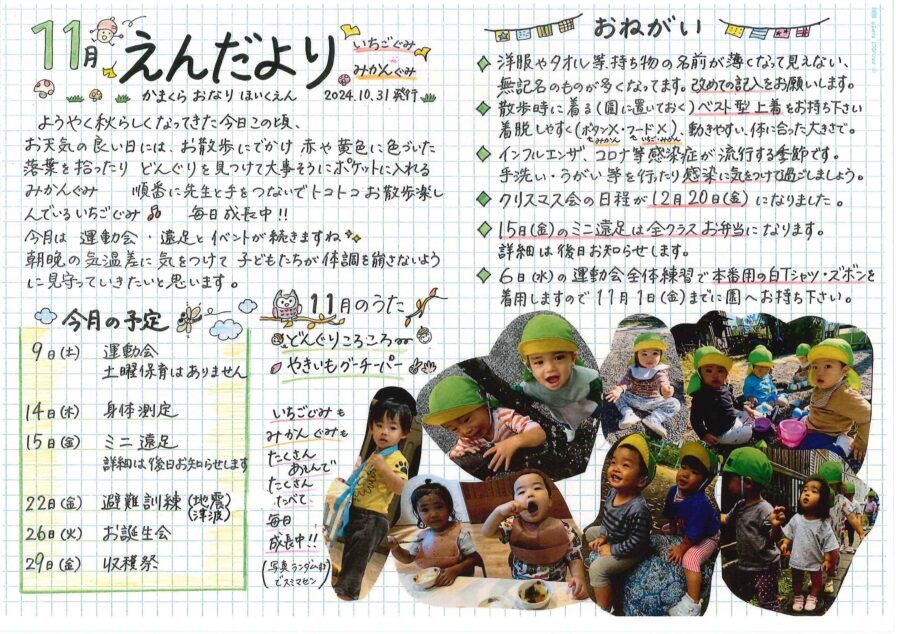 11月 えんだより
いちごぐみ
みかんぐみ
かまくら おなり ほいくえん 2024.10.31 発行
ようやく秋らしくなってきた今日この頃、
お天気の良い日には、お散歩にでかけ 赤や黄色に色づいた
落葉を拾ったり どんぐりを見つけて大事そうにポケットに入れる
みかんぐみ 順番に先生と手をつないでトコトコお散歩楽し
んでいるいちごぐみ 毎日成長中!!
今月は 運動会・遠足とイベントが続きますね
朝晩の気温差に気をつけて 子どもたちが体調を崩さないよう
に見守っていきたいと思います。
今月の予定
9日(土) 運動会
土曜保育はありません
14日(木) 身体測定
15日(金) ミニ遠足
詳細は後日お知らせします
22日(金) 避難訓練(地震 津波)
26日(火) お誕生会
29日(金) 収穫祭
11月のうた
どんぐりころころ
やきいもグーチーパー
いちごぐみも
みかんぐみも
たくさん
あそんで
たくさん
たべて、
毎日
成長中!!
(写真ランダム
でスミマセン)
おねがい
◆ 洋服やタオル等、持ち物の名前が薄くなって見えない、
無記名のものが多くなってます。改めての記入をお願いします。
◆ 散歩時に着る(園に置いておく)ベスト型上着をお持ち下さい
着脱しやすく(ボタン×・フード×)、動きやすい、体に合った大きさで。
みかん いちご・みかん
◆ インフルエンザ、コロナ等感染症が流行する季節です。
手洗い・うがい等を行ったり感染に気をつけて過ごしましょう。
◆ クリスマス会の日程が12月20日(金)になりました。
◆ 15日(金)のミニ遠足は全クラスお弁当になります。
詳細は後日お知らせします。
◆ 6日(水)の運動会全体練習で本番用の白Tシャツ・ズボンを
着用しますので11月1日(金)までに園へお持ち下さい。